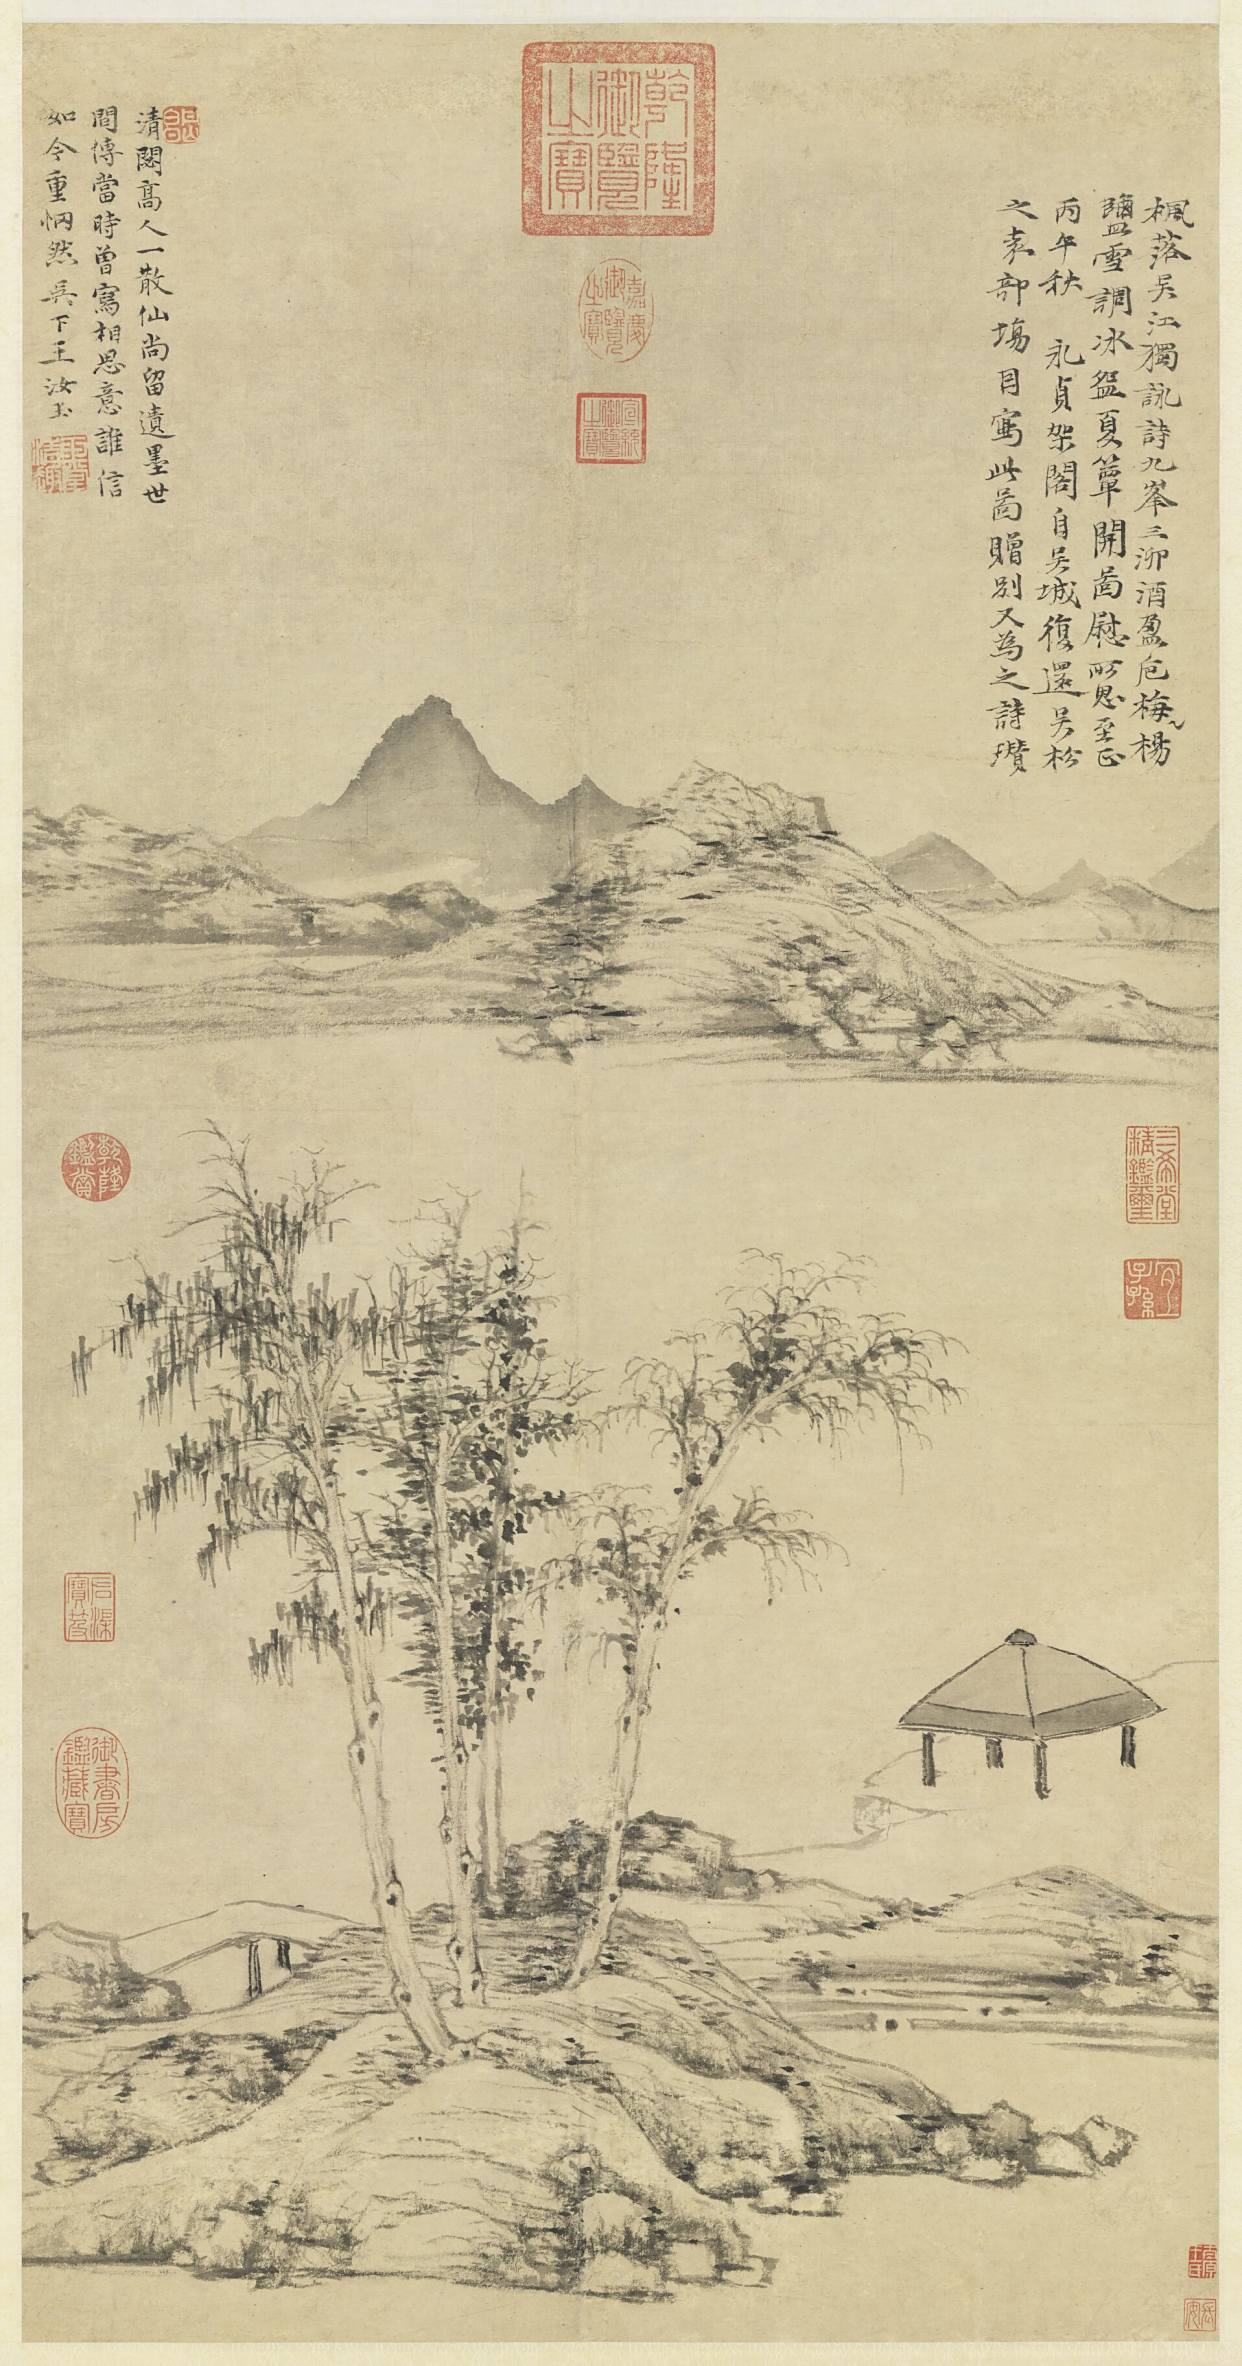 楓落吳江獨詠詩九峯三泖酒盈卮梅楊
鹽雪調冰盌夏簟開啚慰所思至正
丙午秋 永貞架閣自吳城復還吳松
之袁部場目寫此啚贈別又為之詩瓚
清閟高人一散仙尚留遺墨世
間傳當時曾寫相思意誰信
如今重惘然吳下王汝玉
乾隆御覽之寶
嘉慶御覽之寶
宣統御覽之寶
乾隆鑑賞
三希堂精鑑璽
宜子孫
石渠寶笈
御書房鑑藏寶